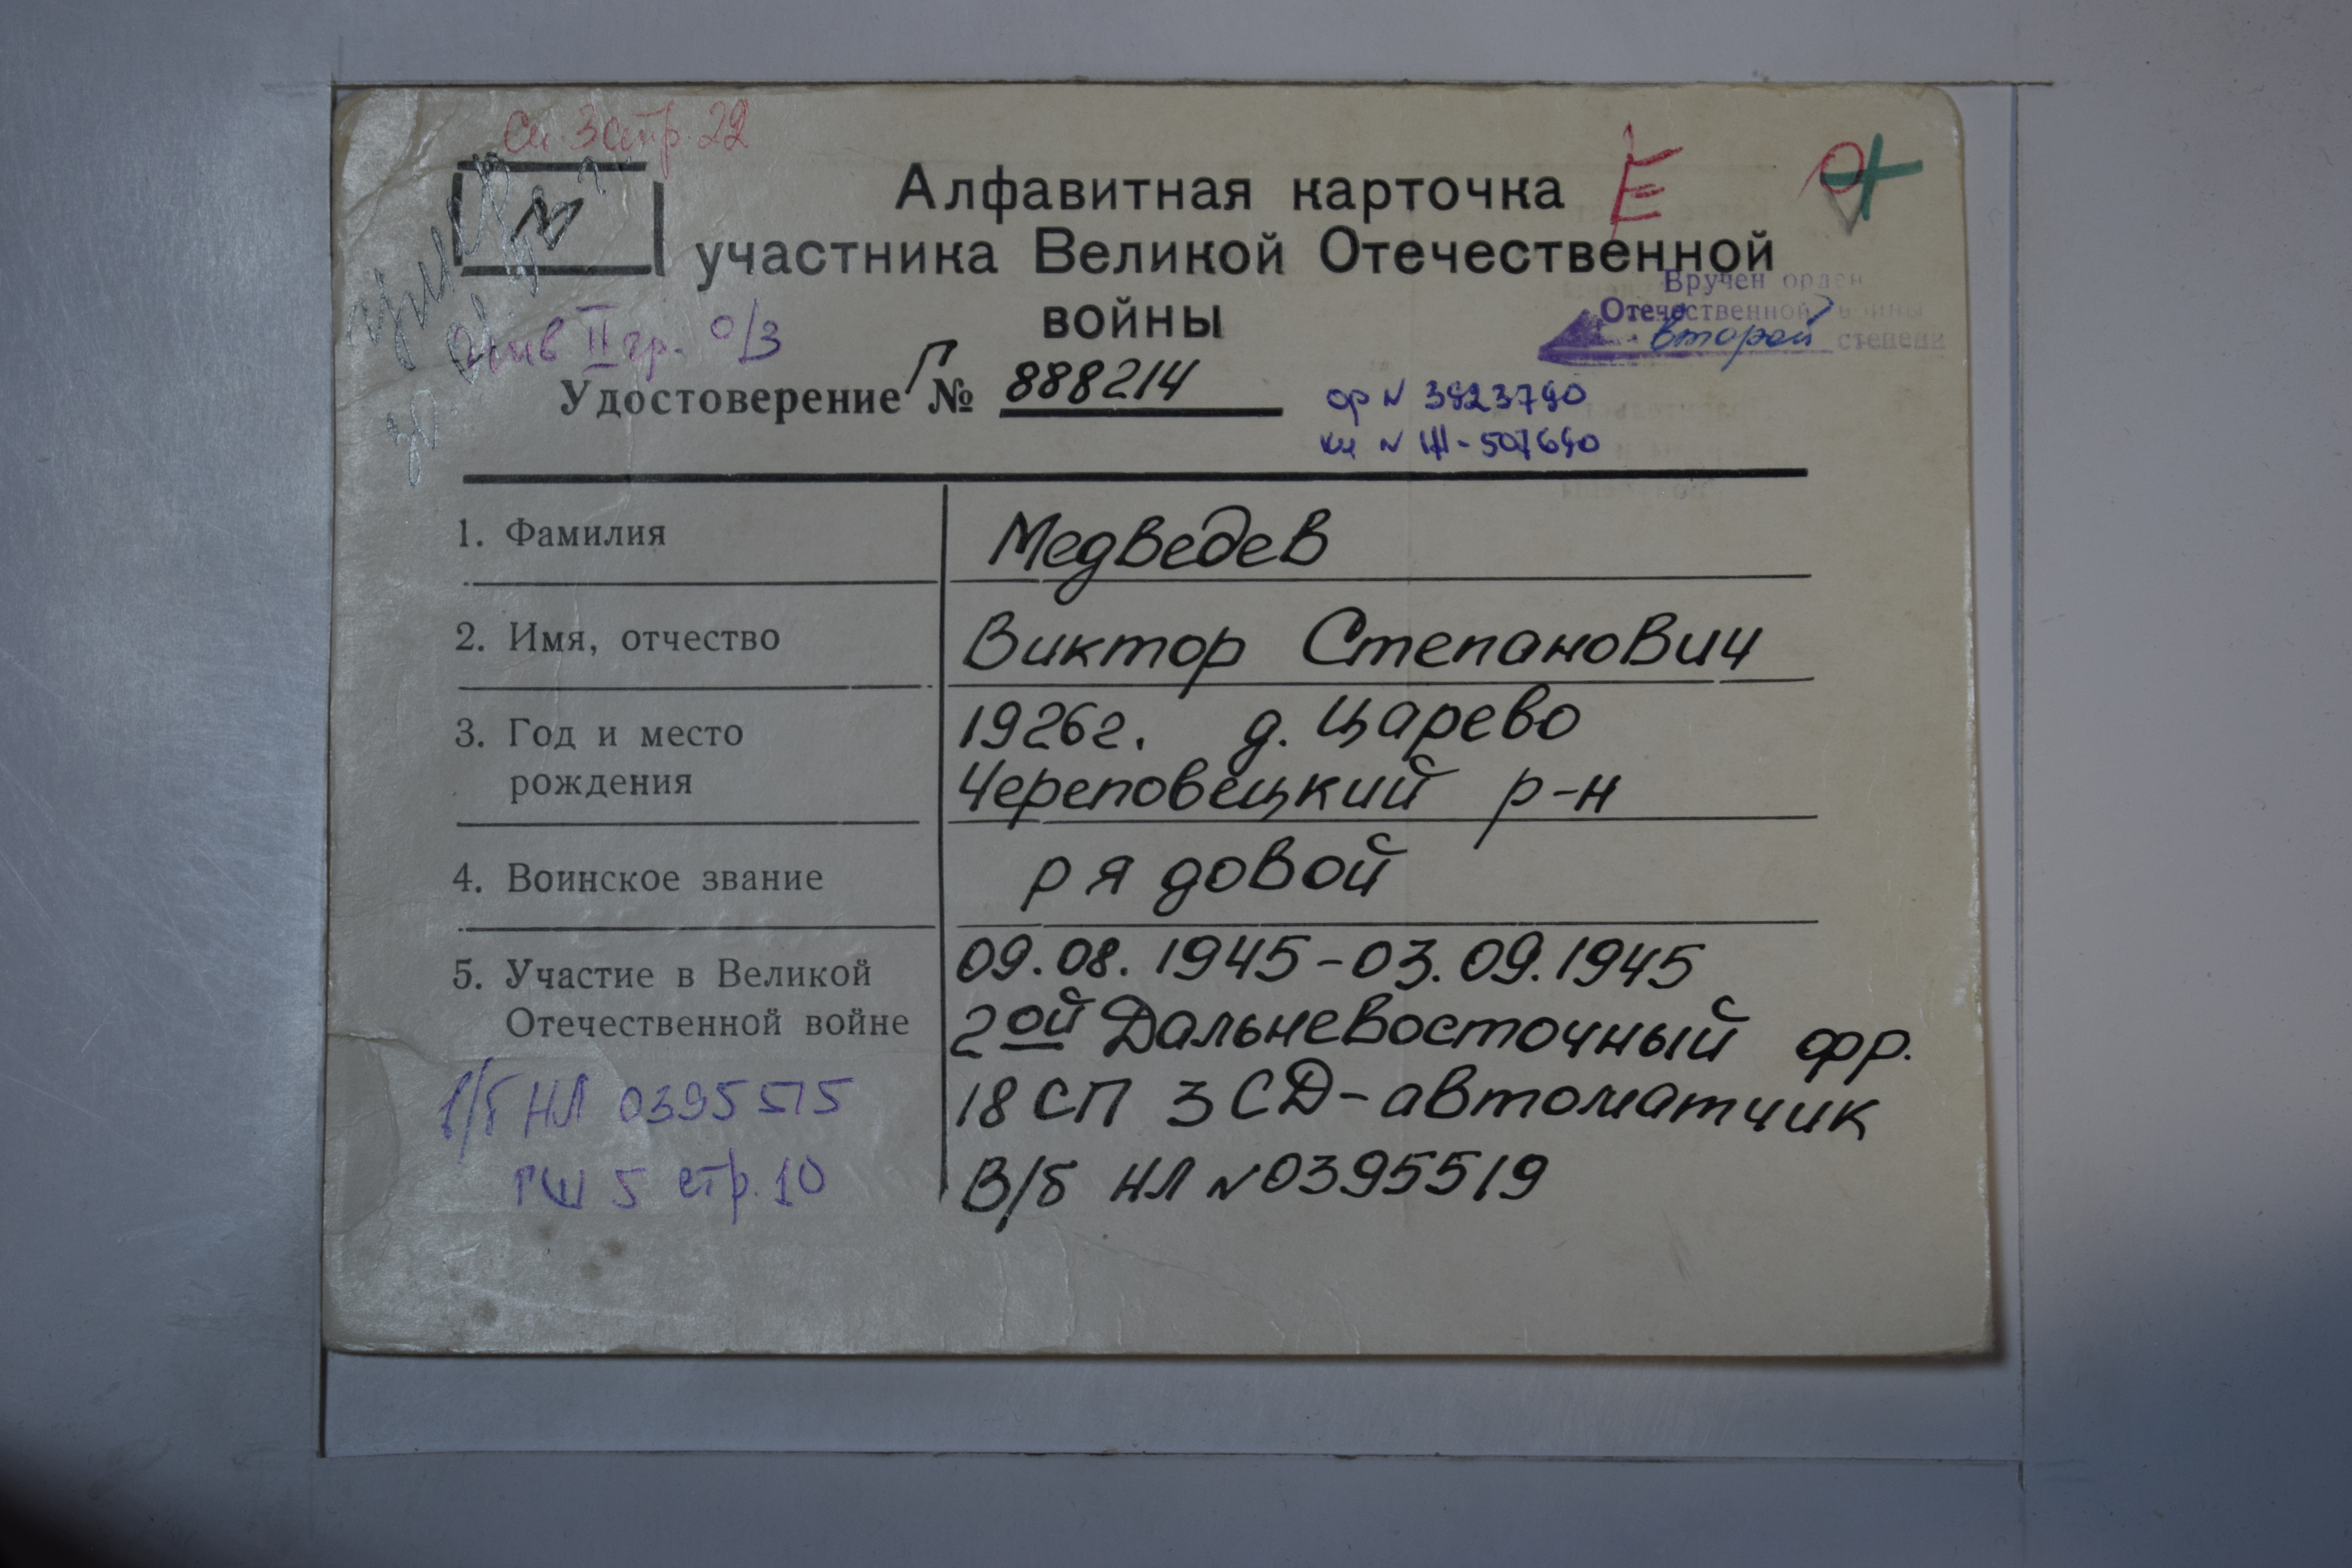 Сп. 3 стр. 22
Алфавитная карточка Е
участника Великой Отечественной
войны
Вручен орден
Отечественной войны
второй степени
инв II гр. о/з
Удостоверение Г № 888214
ор N 3923790
кн N Ш-507690
1. Фамилия Медведев
2. Имя, отчество Виктор Степанович
3. Год и место 1926г. д. Царево
рождения Череповецкий р-н
4. Воинское звание рядовой
5. Участие в Великой 09.08.1945-03.09.1945
Отечественной войне 2ой Дальневосточный фр.
в/б НЛ 0395515 18 СП 3 СД-автоматчик
ГШ 5 стр. 10 В/б НЛ N 0395519